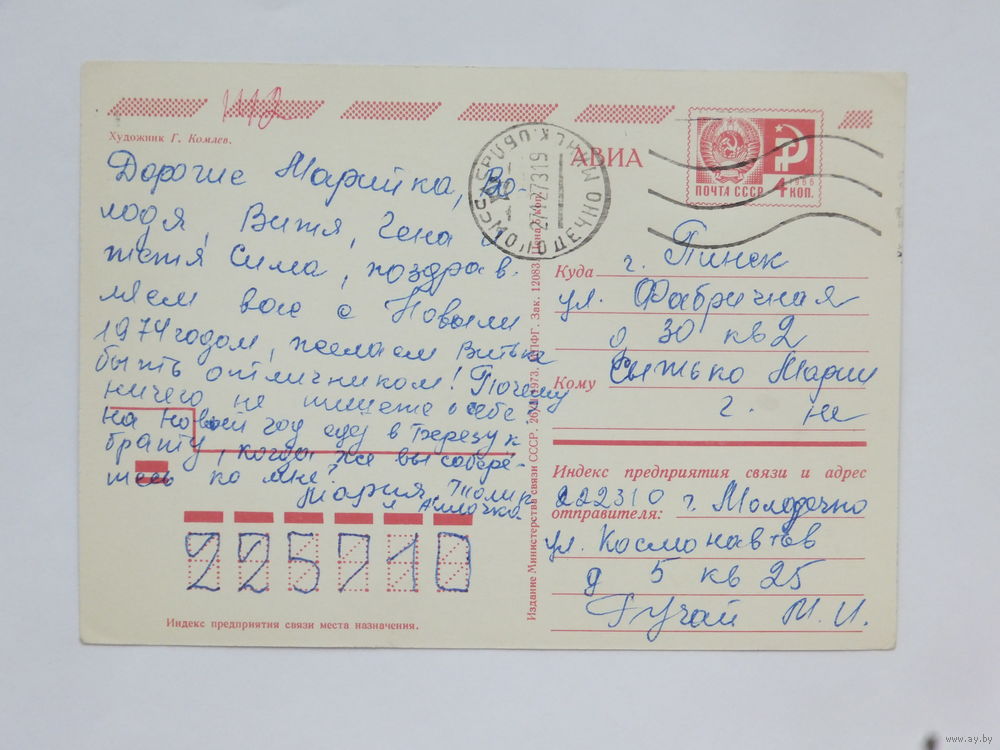 Художник Г. Комлев.
АВИА
ПОЧТА СССР
1966
4 КОП.
Дорогие Марийка, Во-
лодя, Витя, Гена и
тетя Сима, поздрав-
ляем вас с Новым
1974 годом, желаем Витьке
быть отличником! Почему
ничего не пишете о себе
на новый год еду в Березу к
брату, когда же вы собере-
тесь ко мне?
Мария, Толик
и Аллочка
225710
Индекс предприятия связи места назначения.
Издание Министерства связи СССР.
1973.
Зак. 12083.
Куда г. Пинск
ул. Фабричная
д 30 кв 2
Кому Сытько Марии
Г. Не
Индекс предприятия связи и адрес
отправителя:
222310 г. Молодечно
ул. Космонавтов
д 5 кв 25
Гучай М. И.
www.ay.by